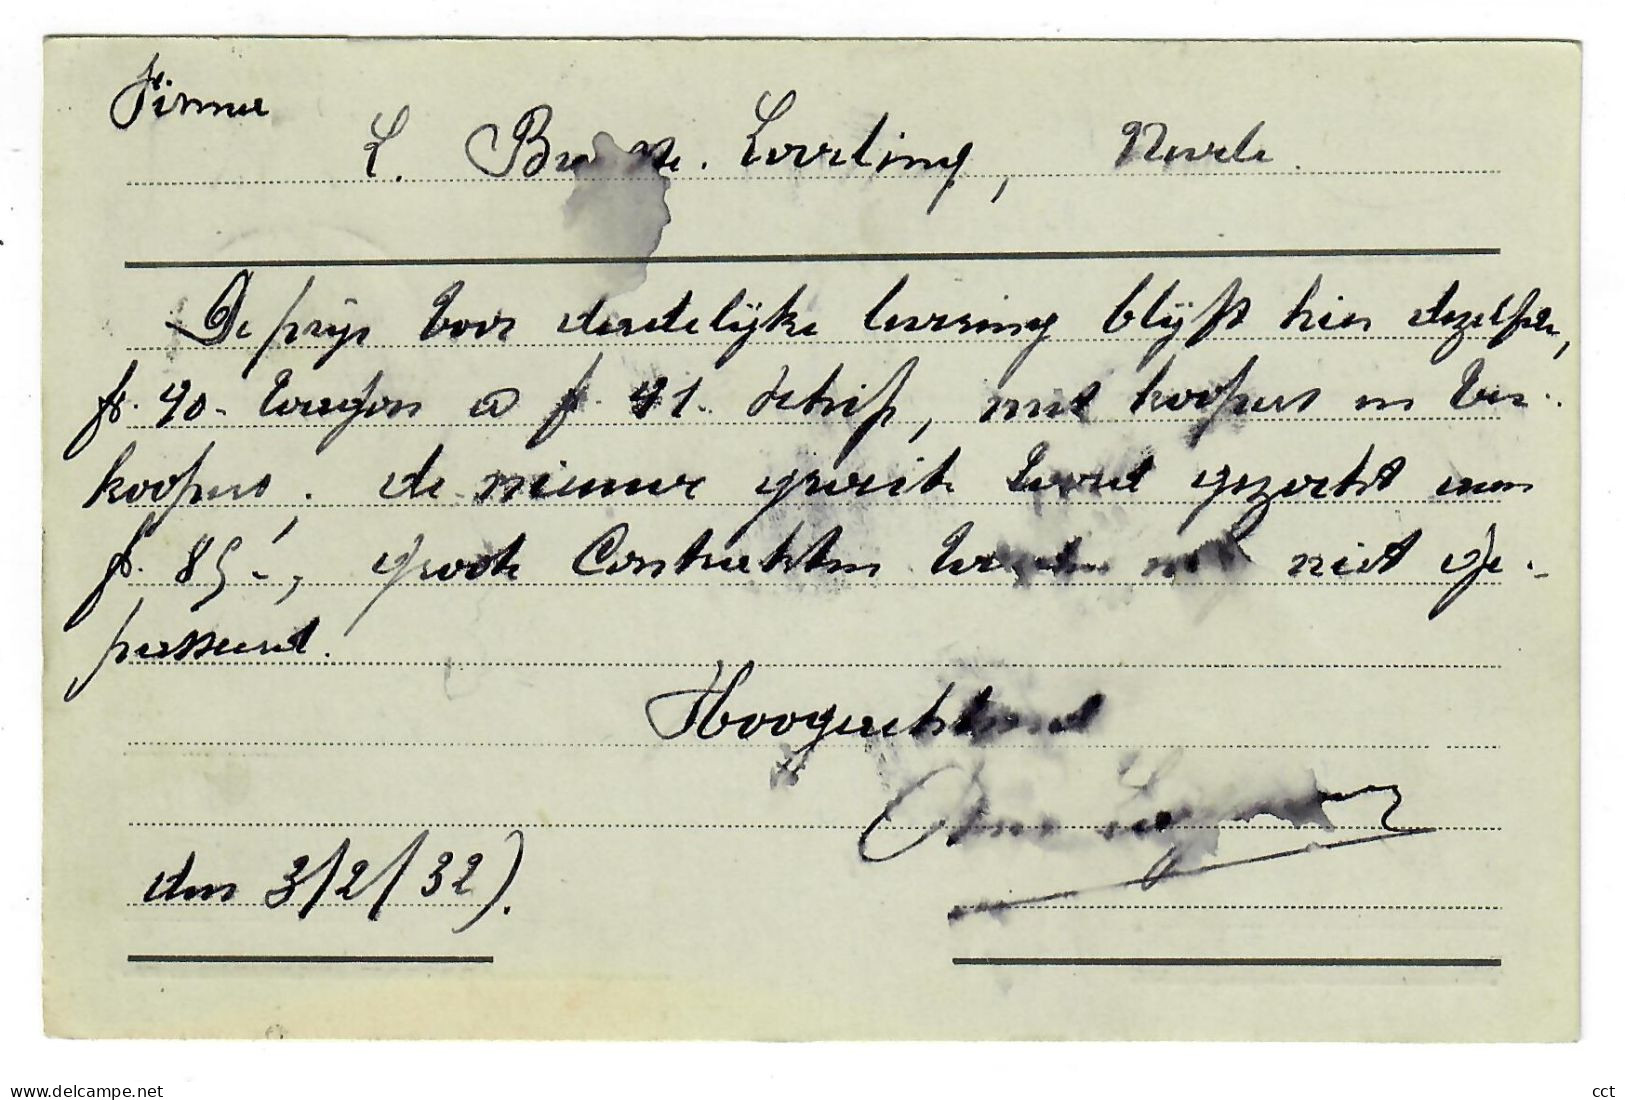 Firma
L. Leerling, Neerle.
De prijs voor dadelijke levering blijft hier dezelfde,
fr. 90.- wagon a fr. 91.- schip, met koopers en ver-
koopers. de nieuwe wordt gezocht aan
fr. 85.-, groote Contrakten worden niet ge-
passeerd.
Hoogachtend
den 3/2/32).
www.delcampe.net
cct